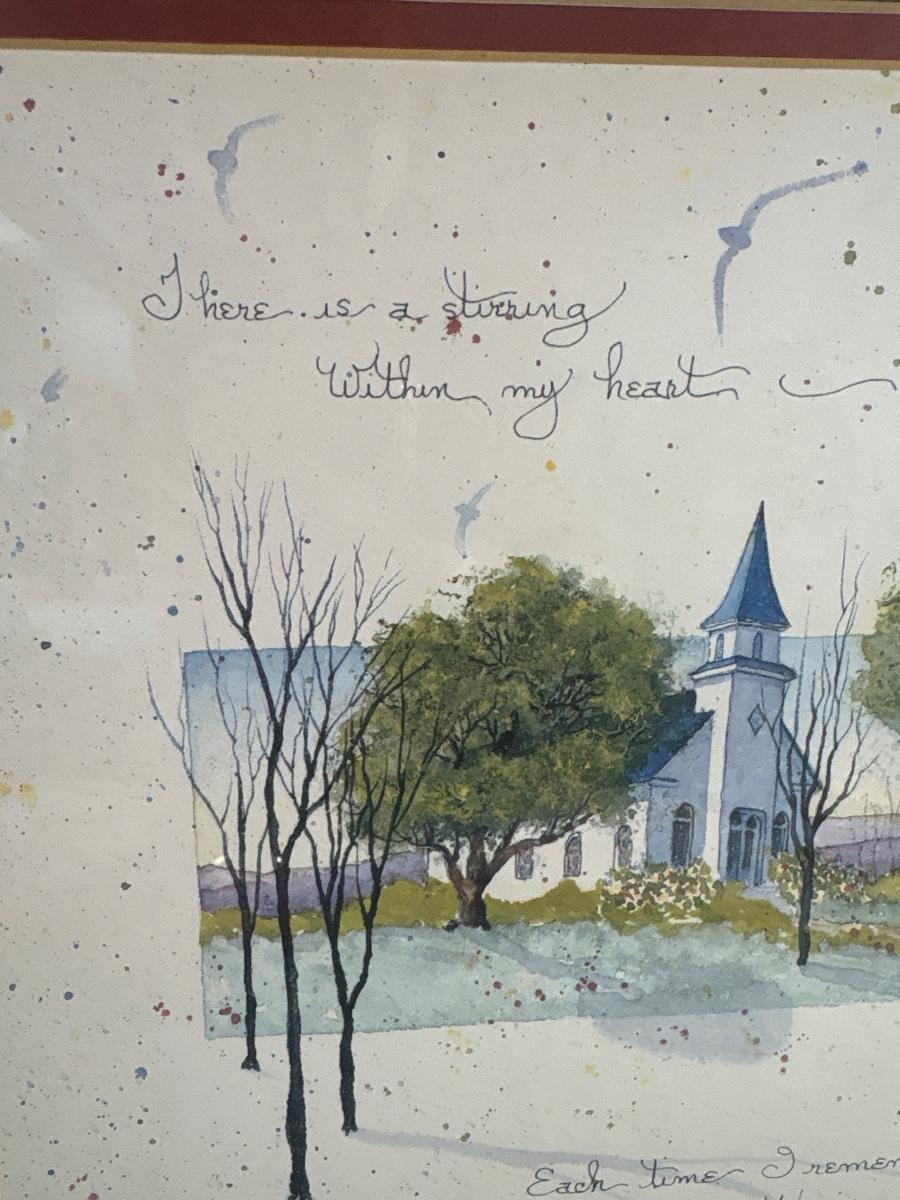 There is a stirring
Within my heart
Each time I remem